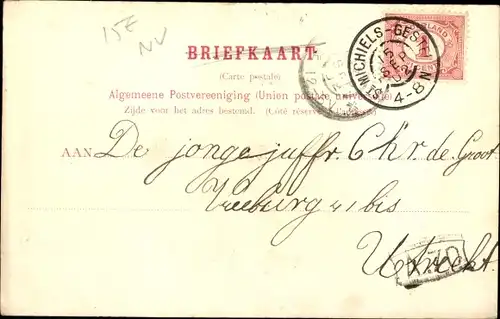 15E
NV
BRIEFKAART
(Carte postale)
Algemeene Postvereeniging (Union postale universelle)
Zijde voor het adres bestemd. (Côté réservé à l'adresse)
ST-MICHIELS-GEST
15 SEP
4-8 N
AAN De jonge juffr. Chr. de Groot
41 bis
Utrecht.